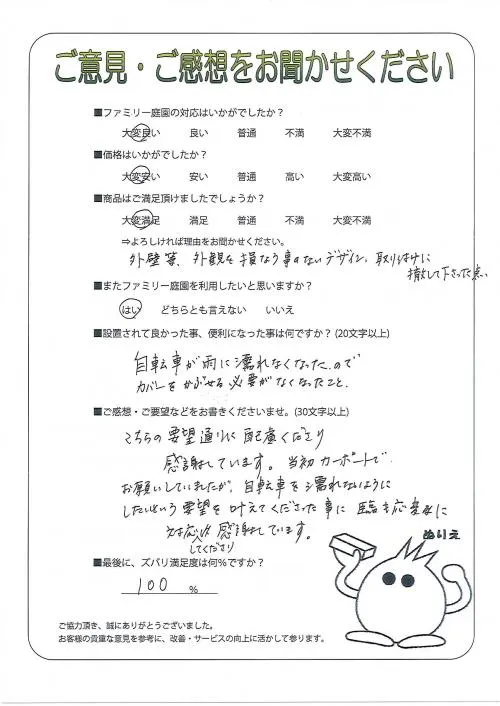 ご意見・ご感想をお聞かせください
■ファミリー庭園の対応はいかがでしたか？
大変良い 良い 普通 不満 大変不満
■価格はいかがでしたか？
大変安い 安い 普通 高い 大変高い
■商品はご満足頂けましたでしょうか？
大変満足 満足 普通 不満 大変不満
⇒よろしければ理由をお聞かせください。
外壁等、外観を損なう事のないデザイン。取り付けに
徹して下さった点
■またファミリー庭園を利用したいと思いますか？
はい どちらとも言えない いいえ
■設置されて良かった事、便利になった事は何ですか？(20文字以上)
自転車が雨に濡れなくなったので
カバーをかぶせる必要がなくなったこと。
■ご感想・ご要望などをお書きくださいませ。(30文字以上)
こちらの要望通りに配慮くださり
感謝しています。当初カーポートで
お願いしていましたが、自転車を濡れないように
したいという要望を叶えてくださった事に 臨き応変に
対応 感謝しています。
してくださり
ぬりえ
■最後に、ズバリ満足度は何%ですか？
100 %
ご協力頂き、誠にありがとうございました。
お客様の貴重な意見を参考に、改善・サービスの向上に活かして参ります。